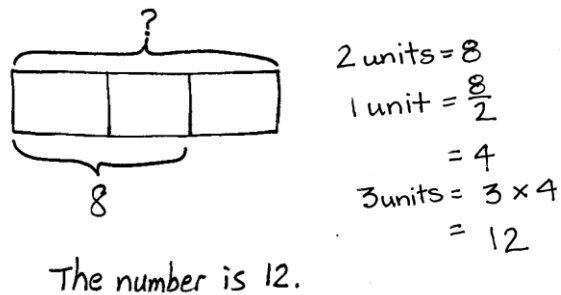 ?
8
2 units = 8
1 unit = 8/2
= 4
3 units = 3 × 4
= 12
The number is 12.